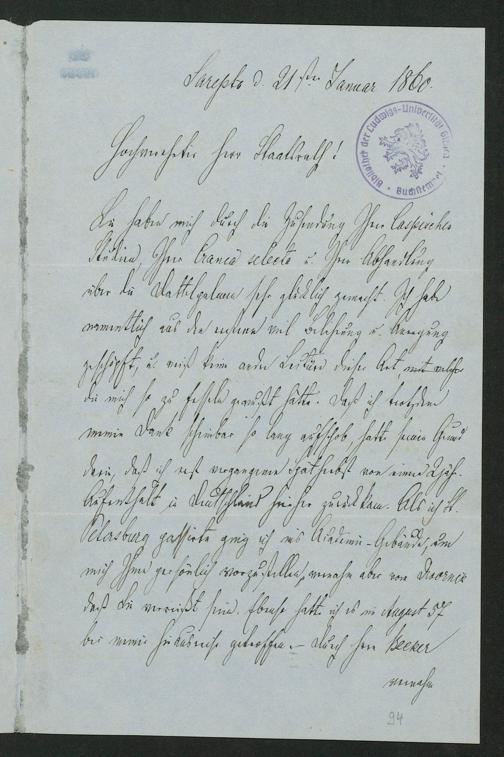 Sarepta d. 21sten Januar 1860.
Bibliothek der Ludwigs-Universität Giessen
Hochverehrter Herr Staatsrath!
Sie haben mich durch die Zusendung Ihrer Caspischen
Studien, Ihrer Crania selecta u. Ihrer Abhandlung
über die Dattelpalme sehr glücklich gemacht. Ich habe
namentlich aus den ersteren viel Belehrung u. Anregung
geschöpft, u. weiß keine andre Lektüre dieser Art, mit welcher
die mich so zu fesseln gewußt hätte. Daß ich trotzdem
meinen Dank scheinbar so lang aufschob, hatte seinen Grund
darin, daß ich erst vergangenen Spätherbst von einem 2jähr.
Aufenthalt in Deutschland hierher zurückkam. Als ich St.
Petersburg passirte ging ich ins Academie-Gebäude, um
mich Ihnen persönlich vorzustellen, vernahm aber vom
daß Sie verreist sein. Ebenso hatte ich es im August 57
bei meiner Hinausreise getroffen. – Durch Herrn Becker
vernahm
94